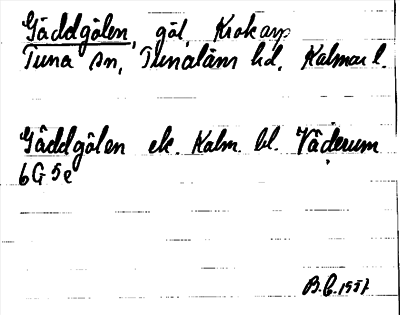 Gäddgölen, göl, Krokarp
Tuna sn, Tunaläns hd, Kalmar l.
Gäddgölen ek. Kalm. bl. Väderum
6G 5e
B.C. 1957